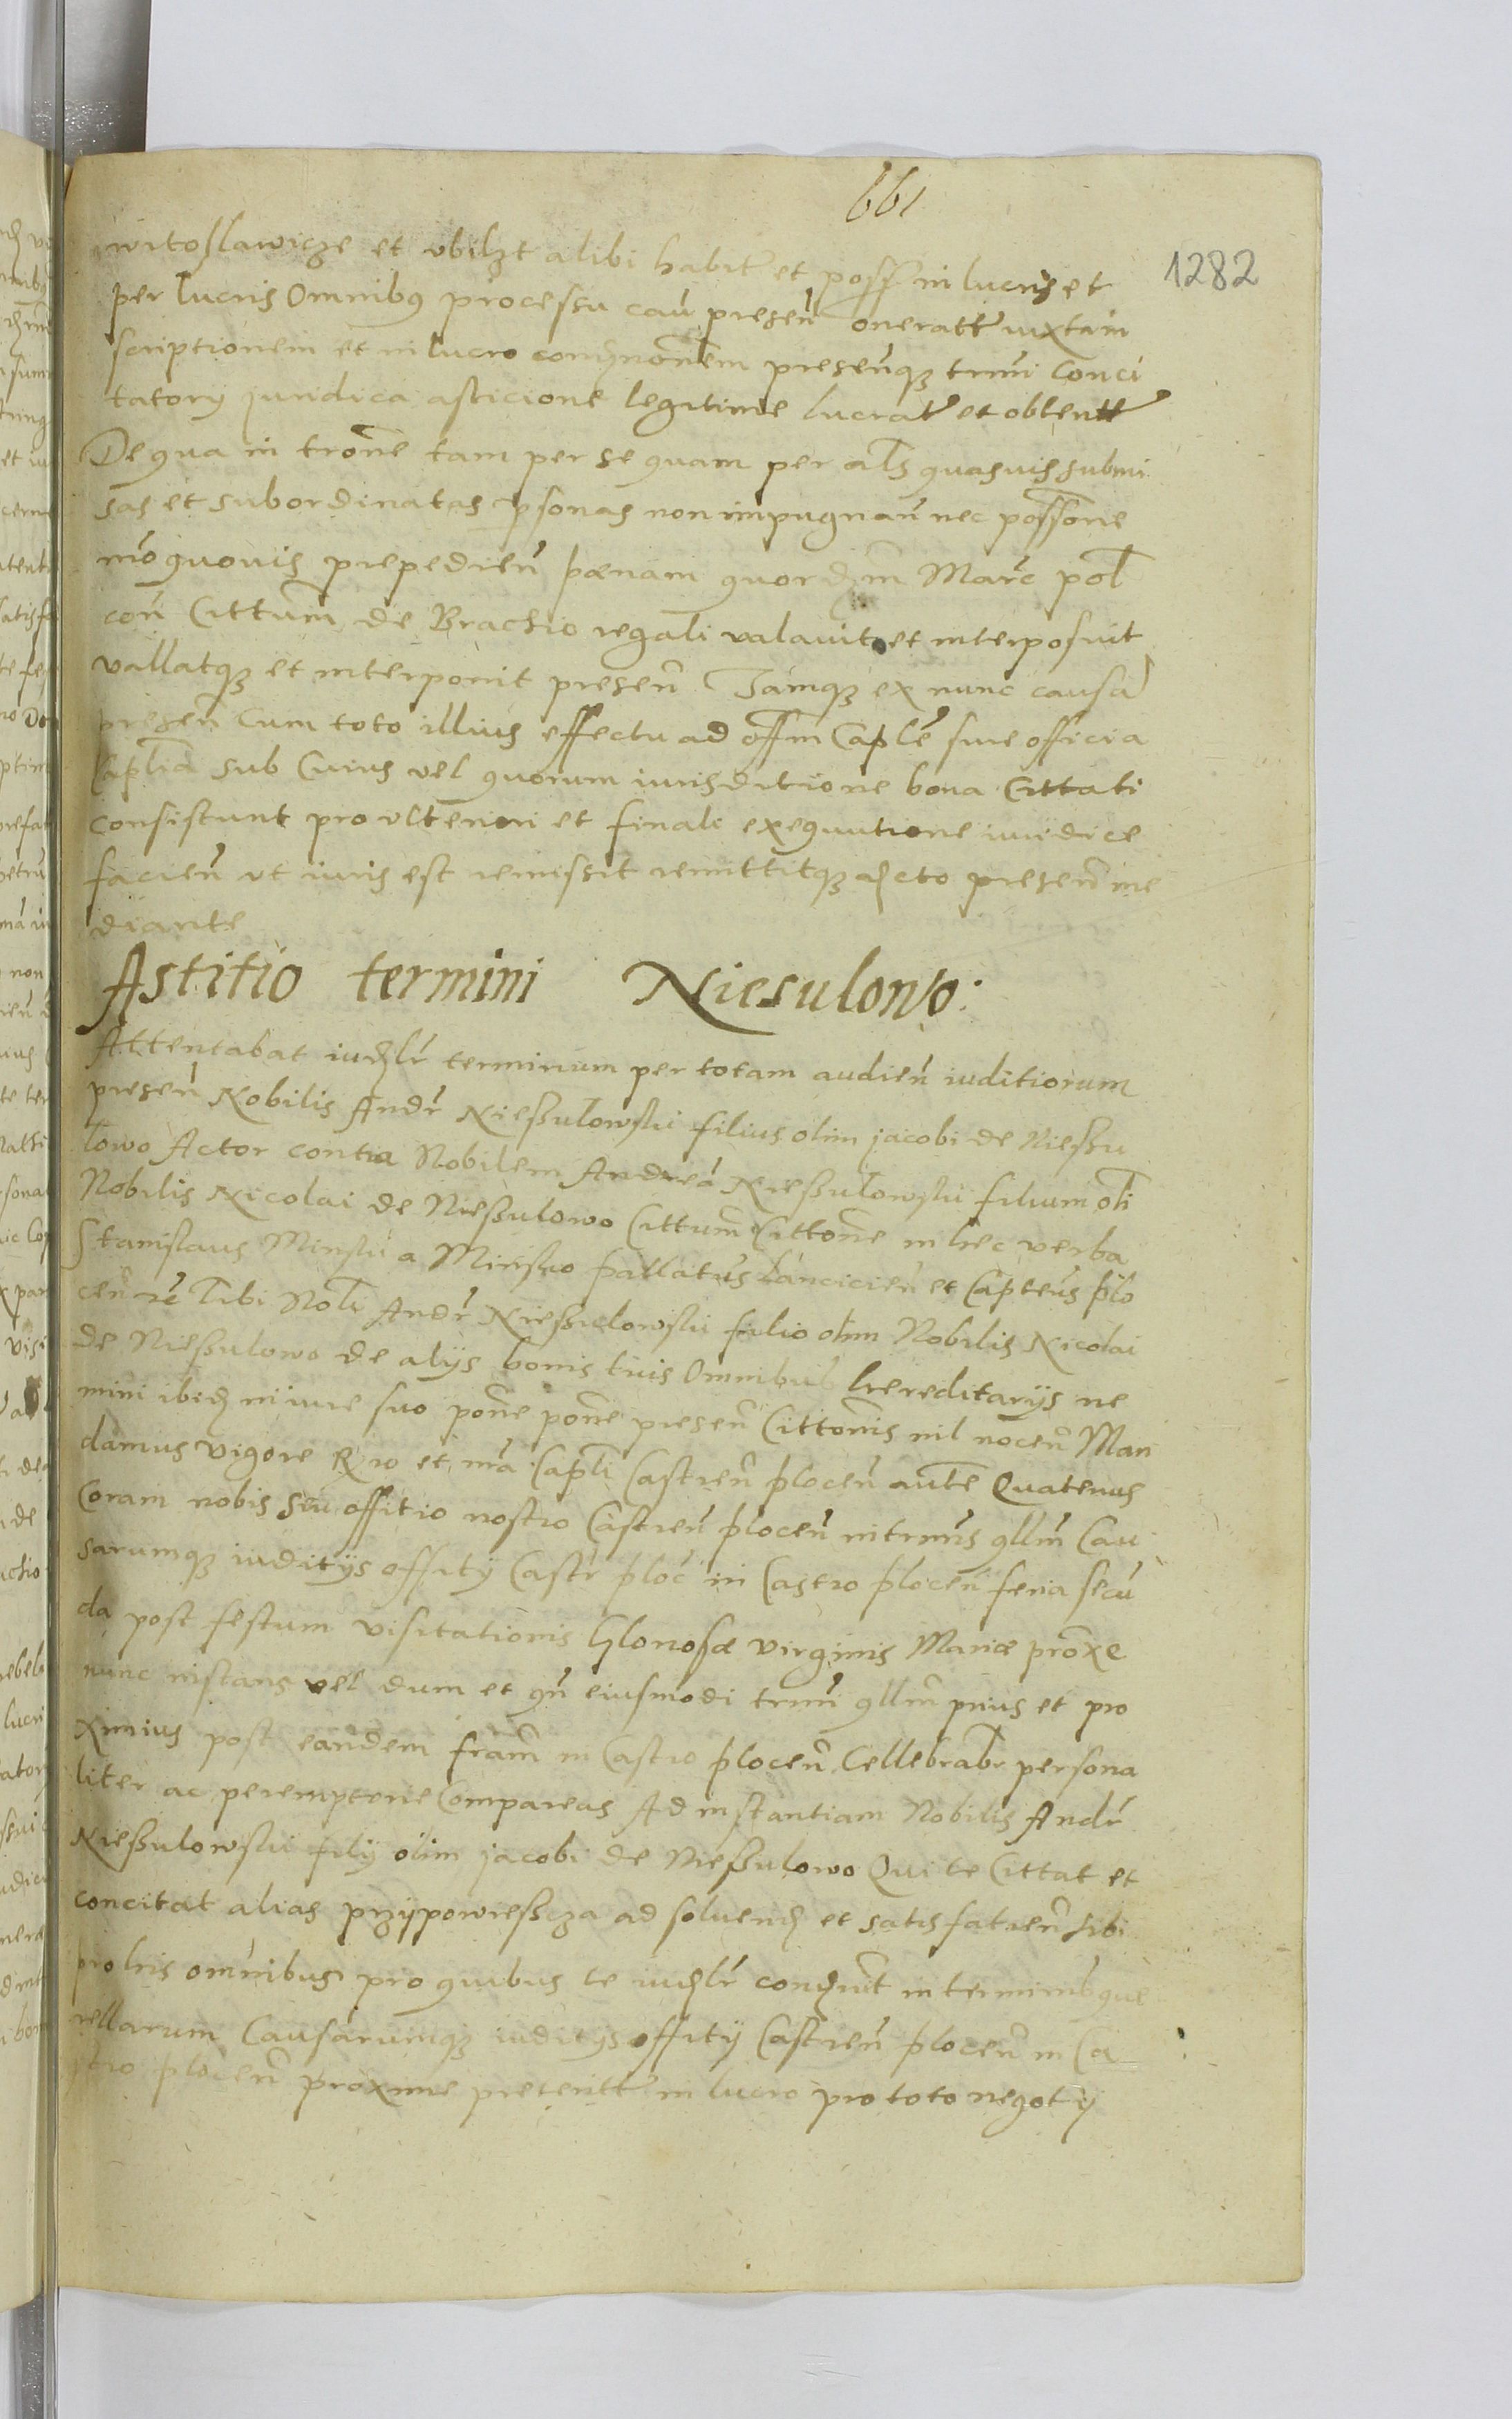 661
1282
witoslawicze et vbilzt alibi habit et poss in lucris et
per lucris Omnibus processu cau presen oneratt iuxta in
scriptionem et in lucro condemnationem presenqz trmi Conci
tatory juridica asticione legitime lucrat et obtentt
De qua in trone tam per se quam per als quasuis submi
sas et subordinatas psonas non impugnan nec possone
mo quouis prepedien pœnam quor dym Marc pol
con Cittum de Brachio regali valauit et interposuit
vallatqz et interponit presen Jamqz ex nunc causa
presen Cum toto illius effectu ad offm Caple siue officia
Caplia sub Cuius vel quorum iurisditione bona Cittati
consistunt pro vlteriori et finali exequutione iuridice
facien vt iuris est remissit remittitqz decto presen me
diante
Astitio termini Niesulowo:
Attentabat iudlr terminum per totam audien iuditiorum
presen Nobilis Andr Nießulowski filius olim jacobi de Nießu
lowo Actor contra Nobilem Andrea Nießulowski filium oli
Nobilis Nicolai de Nießulowo Cittum Cittone in hec verba
Stanislaus Minski a Minsko pallatus Lancicien et Capteus plo
cen rc Tibi Noli Andr Nießulowski filio olim Nobilis Nicolai
de Nießulowo de alijs bonis tuis Omnibus hereditarijs ne
mini ibid in iure suo pone pone presen Cittonis nil nocen Man
damus vigore Rio et ma Capli Castren plocen aute Quatenus
Coram nobis seu offitio nostro Castren plocen in trmis qllm Cau
sarumqz iuditijs offitij Castr ploc in Castro plocen feria secu
da post festum visitationis Glorosæ virginis Mariæ proxe
nunc instans vel dum et qn eiusmodi trmi qllm prius et pro
ximius post eandem fram in Castro plocen Cellebrabr persona
liter ac peremptorie Compareas Ad instantiam Nobilis Andr
Nießulowski filij olim jacobi de Nießulowo Qui te Cittat et
concitat alias przypowießcza ad soluend et satisfatien sibi
pro his omnibus pro quibus te iudlr condemt in terminis que
rellarum Causarumqz iuditijs offitij Castren plocen in Ca
stro plocen proxime preteritt in lucro pro toto negotij